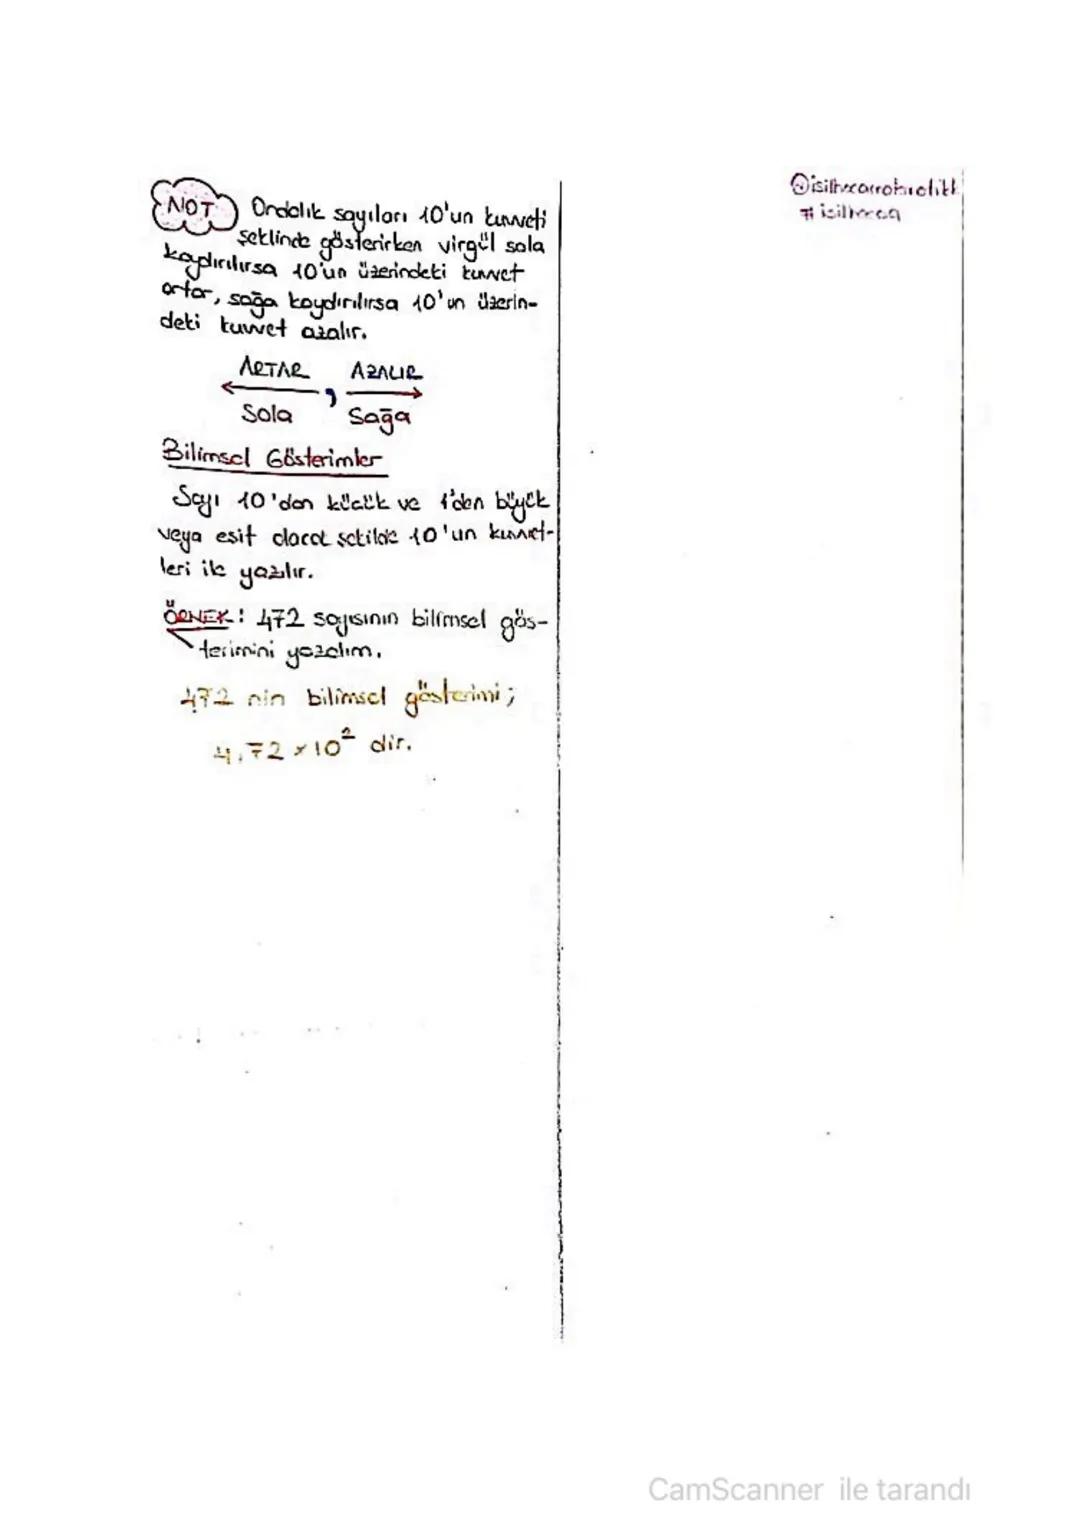 NOT Ondalık sayıları 10'un kuvveti
şeklinde gösterirken virgül sola
kaydırılırsa 10'un üzerindeki kuvvet
artar, sağa kaydırılırsa 10'un üzerin-
deki kuvvet azalır.
ARTAR , AZALIR
Sola Sağa
Bilimsel Gösterimler
Sayı 10'dan küçük ve 1'den büyük
veya eşit olacak şekilde 10'un kuvvet-
leri ile yazılır.
ÖRNEK: 472 sayısının bilimsel gös-
terimini yazalım.
472 nin bilimsel gösterimi;
4,72 x 10² dir.
CamScanner ile tarandı